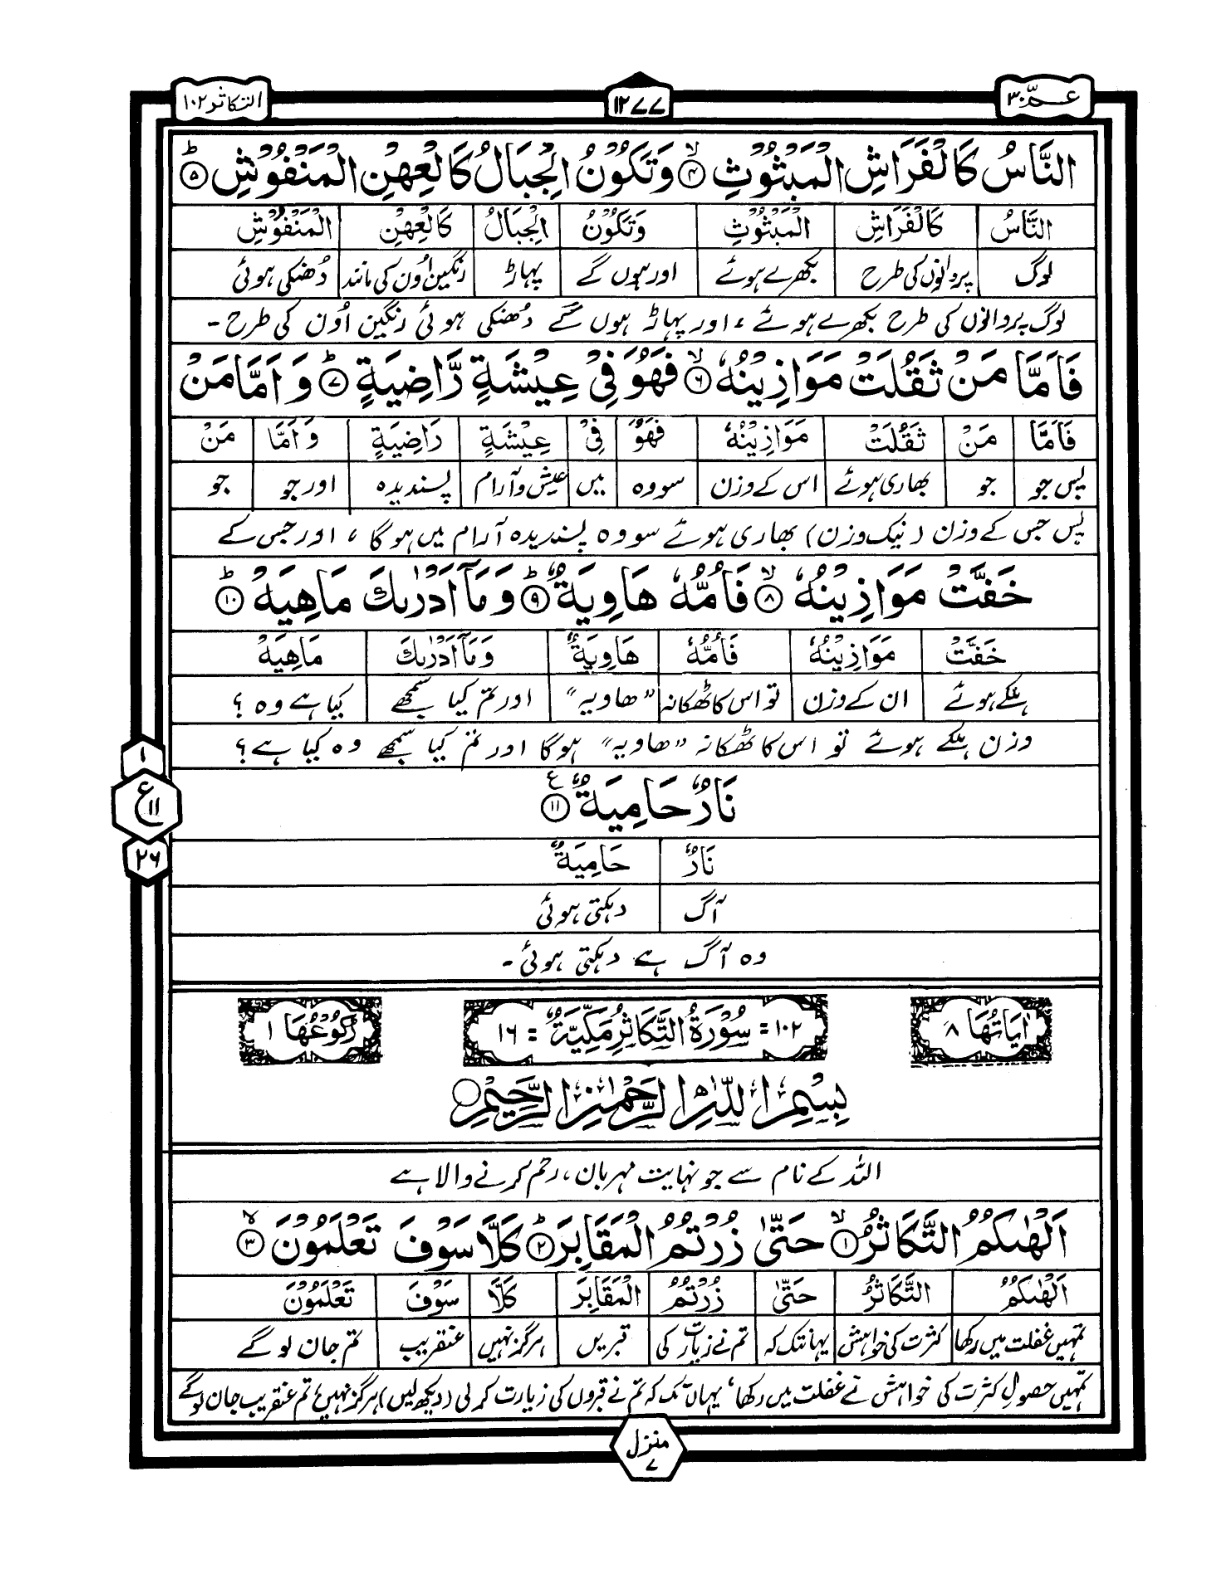 عمّ ٣٠
١٢٧٧
التكاثر ١٠٢
النَّاسُ كَالْفَرَاشِ الْمَبْثُوْثِ ۙ﴿۴﴾ وَتَكُوْنُ الْجِبَالُ كَالْعِهْنِ الْمَنْفُوْشِ ؕ﴿۵﴾
النَّاسُ كَالْفَرَاشِ الْمَبْثُوْثِ وَتَكُوْنُ الْجِبَالُ كَالْعِهْنِ الْمَنْفُوْشِ
لوگ پروانوں کی طرح بکھرے ہوئے اور ہوں گے پہاڑ رنگین اُون کی مانند دُھنکی ہوئی
لوگ پروانوں کی طرح بکھرے ہوئے ، اور پہاڑ ہوں گے دُھنکی ہوئی رنگین اُون کی طرح -
فَاَمَّا مَنْ ثَقُلَتْ مَوَازِيْنُهٗ ۙ﴿۶﴾ فَهُوَ فِيْ عِيْشَةٍ رَّاضِيَةٍ ؕ﴿۷﴾ وَاَمَّا مَنْ
فَاَمَّا مَنْ ثَقُلَتْ مَوَازِيْنُهٗ فَهُوَ فِيْ عِيْشَةٍ رَاضِيَةٍ وَاَمَّا مَنْ
پس جو جو بھاری ہوئے اس کے وزن سو وہ میں عیش و آرام پسندیدہ اور جو جو
پس جس کے وزن ( نیک وزن ) بھاری ہوئے سو وہ پسندیدہ آرام میں ہوگا ، اور جس کے
خَفَّتْ مَوَازِيْنُهٗ ۙ﴿۸﴾ فَاُمُّهٗ هَاوِيَةٌ ؕ﴿۹﴾ وَمَآ اَدْرٰىكَ مَاهِيَهْ ؕ﴿۱۰﴾
خَفَّتْ مَوَازِيْنُهٗ فَاُمُّهٗ هَاوِيَةٌ وَمَآ اَدْرٰىكَ مَاهِيَهْ
ہلکے ہوئے ان کے وزن تو اس کا ٹھکانہ "ھاویہ" اور تم کیا سمجھے کیا ہے وہ ؟
وزن ہلکے ہوئے تو اس کا ٹھکانہ "ھاویہ" ہوگا اور تم کیا سمجھے وہ کیا ہے ؟
١
ع ١١
٢٦
نَارٌ حَامِيَةٌ ۧ﴿۱۱﴾
نَارٌ حَامِيَةٌ
آگ دہکتی ہوئی
وہ آگ ہے دہکتی ہوئی -
اٰيَاتُهَا ٨
١٠٢ = سُوْرَةُ التَّكَاثُرِ مَكِّيَّةٌ = ١٦
رُكُوْعُهَا ١
بِسْمِ اللّٰهِ الرَّحْمٰنِ الرَّحِيْمِ
اللہ کے نام سے جو نہایت مہربان ، رحم کرنے والا ہے
اَلْهٰىكُمُ التَّكَاثُرُ ۙ﴿۱﴾ حَتّٰى زُرْتُمُ الْمَقَابِرَ ؕ﴿۲﴾ كَلَّا سَوْفَ تَعْلَمُوْنَ ۙ﴿۳﴾
اَلْهٰىكُمُ التَّكَاثُرُ حَتّٰى زُرْتُمُ الْمَقَابِرَ كَلَّا سَوْفَ تَعْلَمُوْنَ
تمہیں غفلت میں رکھا کثرت کی خواہش یہانتک کہ تم نے زیارت کی قبریں ہرگز نہیں عنقریب تم جان لو گے
تمہیں حصولِ کثرت کی خواہش نے غفلت میں رکھا ، یہاں تک کہ تم نے قبروں کی زیارت کر لی ( دیکھ لیں ) ہرگز نہیں تم عنقریب جان لو گے
منزل ٧